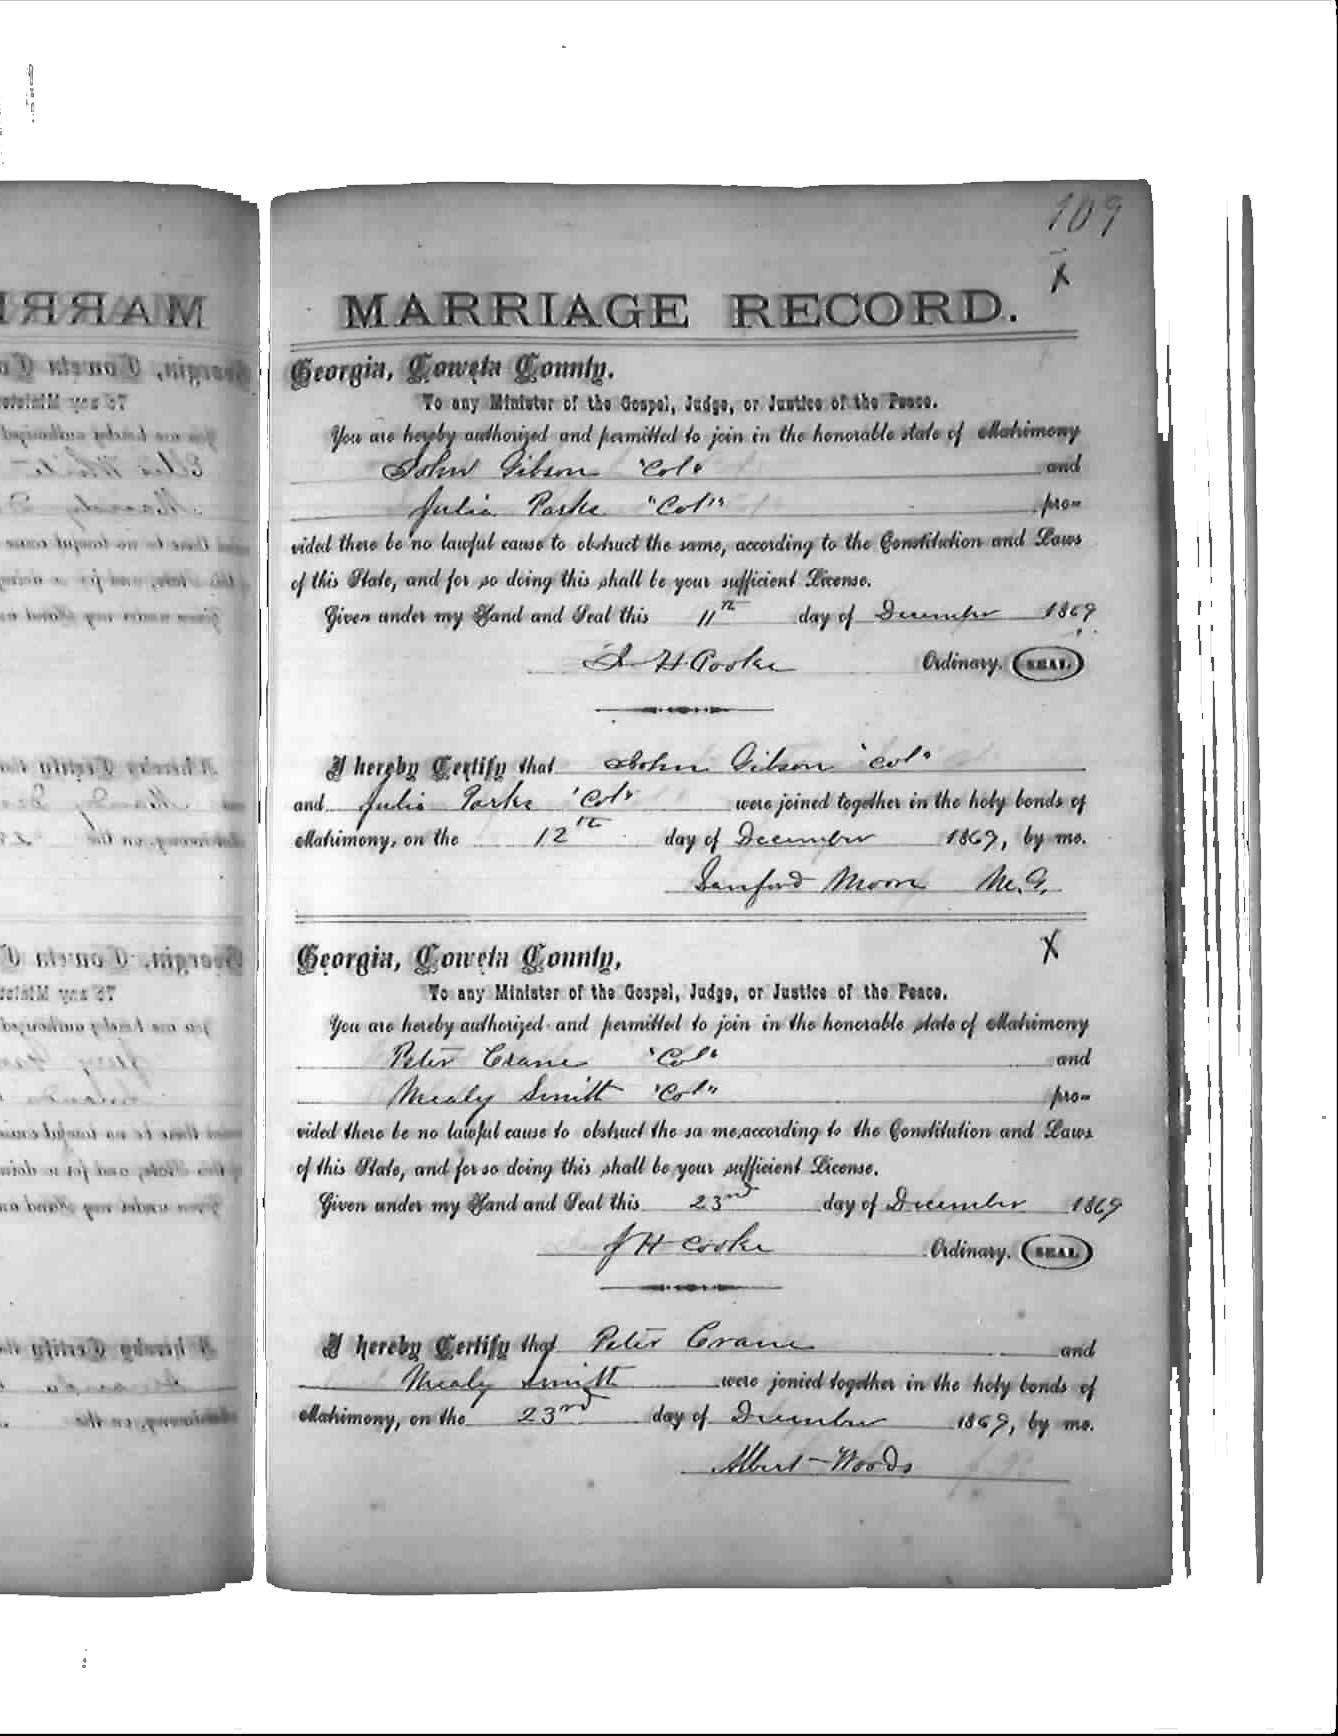 109
X
MARRIAGE RECORD.
Georgia, Coweta County.
To any Minister of the Gospel, Judge, or Justice of the Peace.
You are hereby authorized and permitted to join in the honorable state of Matrimony
John Gibson "Col" and
Julia Parks "Col" pro-
vided there be no lawful cause to obstruct the same, according to the Constitution and Laws
of this State, and for so doing this shall be your sufficient License.
Given under my Hand and Seal this 11th day of December 1869
J H Cooke Ordinary. SEAL.
I hereby Certify that John Gibson "Col"
and Julia Parks "Col" were joined together in the holy bonds of
Matrimony, on the 12th day of December 1869, by me.
Sanford Moore M.G.
Georgia, Coweta County,
X
To any Minister of the Gospel, Judge, or Justice of the Peace.
You are hereby authorized and permitted to join in the honorable state of Matrimony
Peter Crane "Col" and
Mealy Smith "Col" pro-
vided there be no lawful cause to obstruct the sa me, according to the Constitution and Laws
of this State, and for so doing this shall be your sufficient License.
Given under my Hand and Seal this 23rd day of December 1869
J H Cooke Ordinary. SEAL
I hereby Certify that Peter Crane and
Mealy Smith were jonied together in the holy bonds of
Matrimony, on the 23rd day of December 1869, by me.
Albert Woods